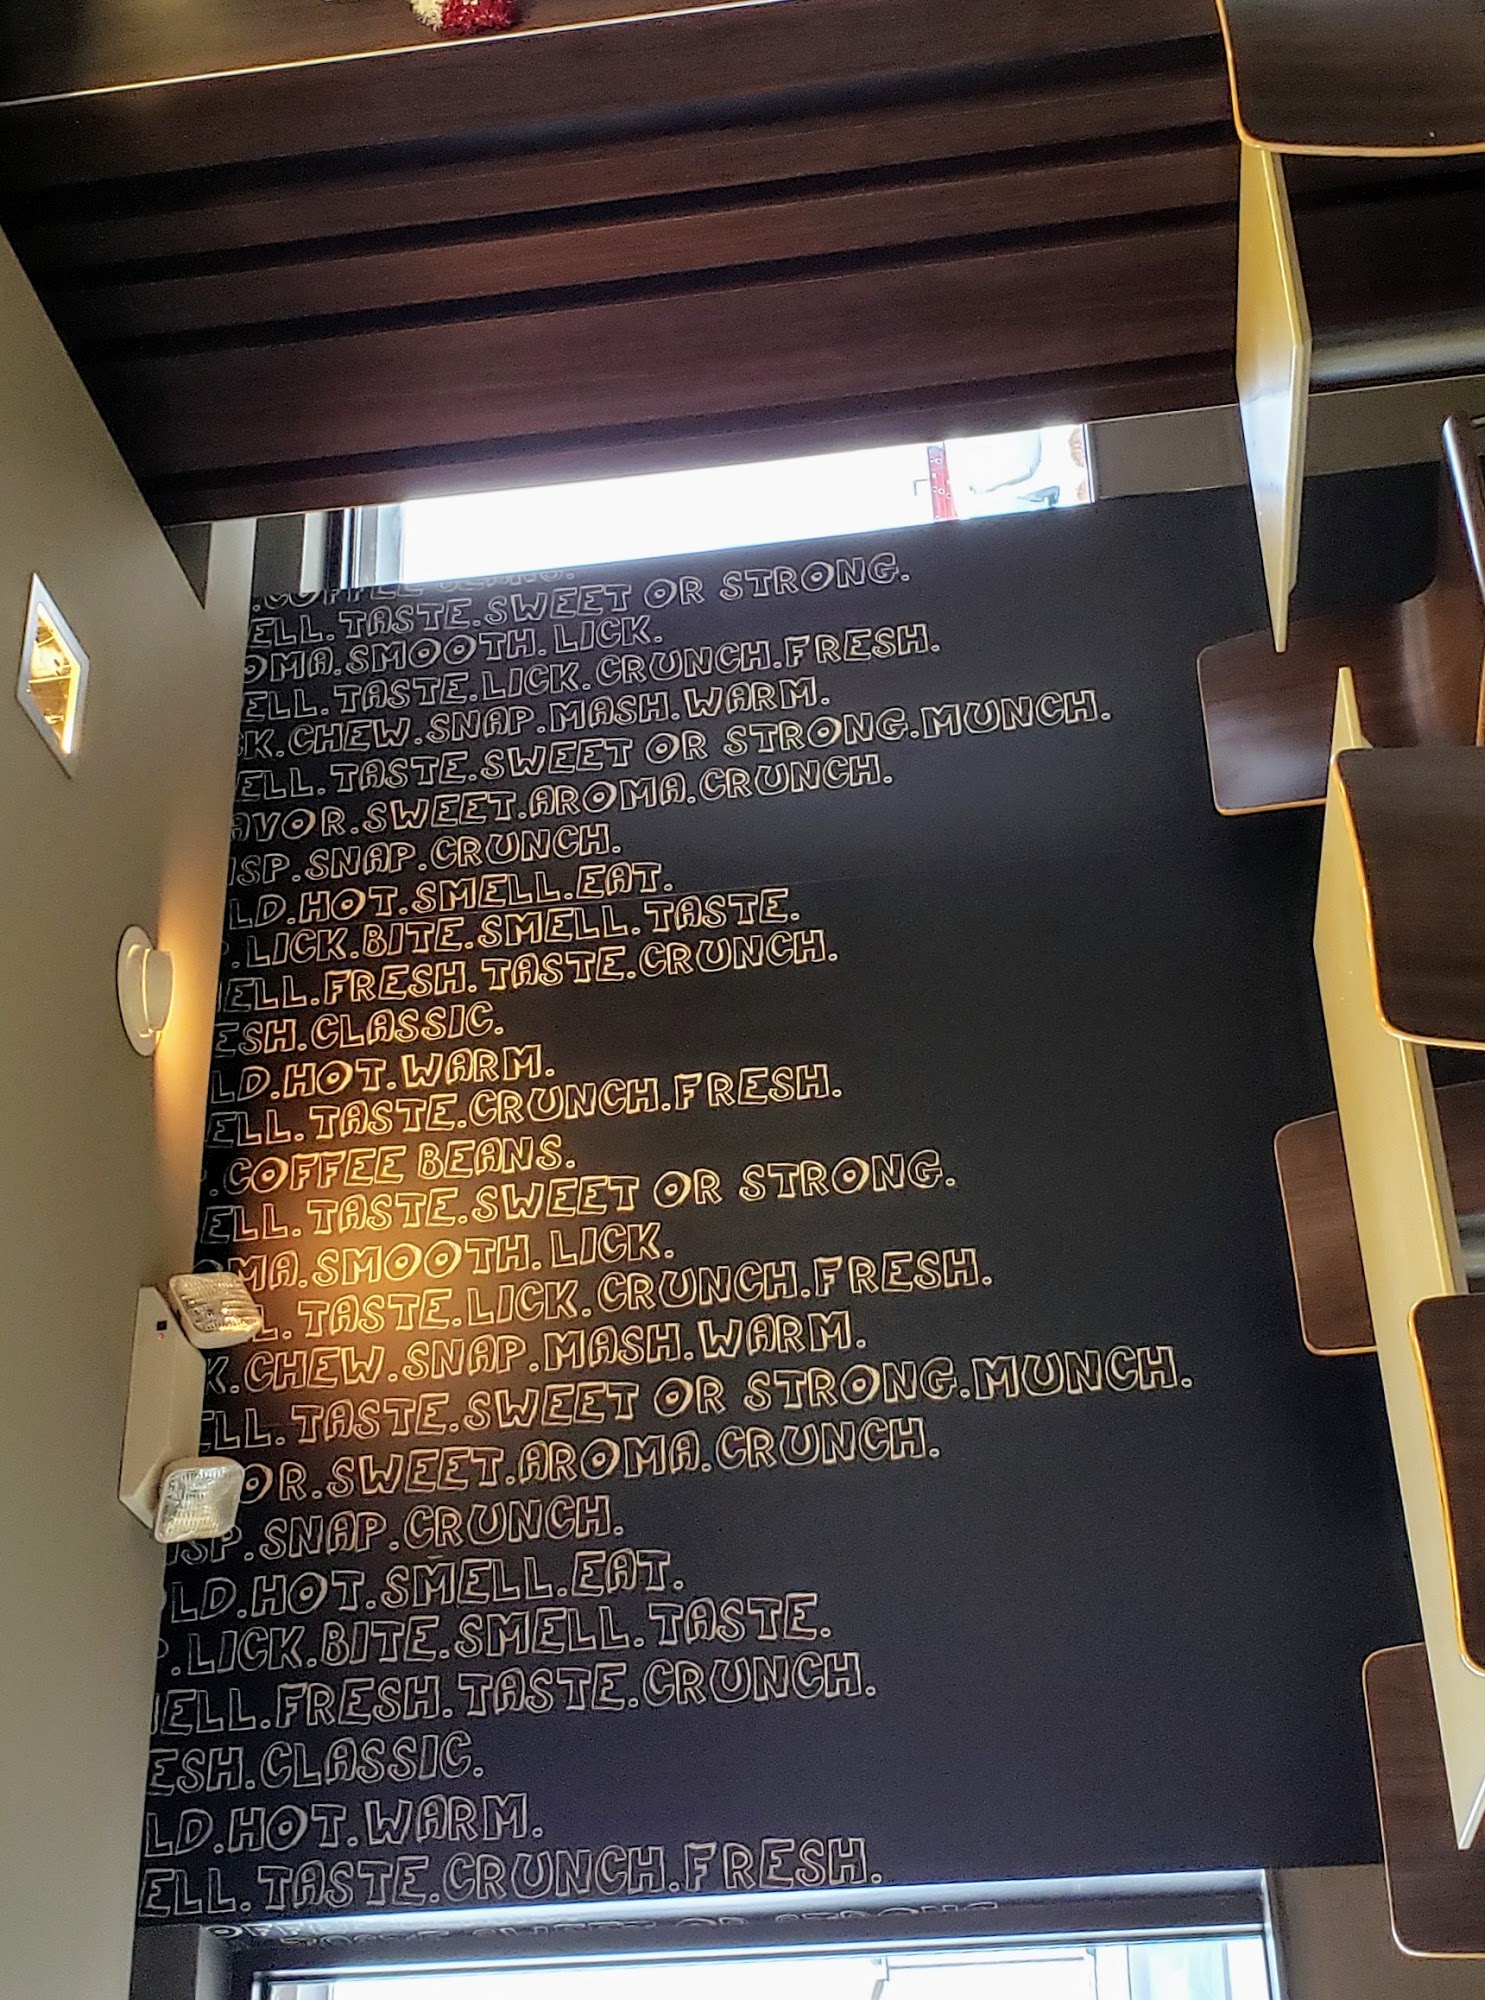 .COFFEE BEANS.
ELL.TASTE.SWEET OR STRONG.
OMA.SMOOTH.LICK.
ELL.TASTE.LICK.CRUNCH.FRESH.
K.CHEW.SNAP.MASH.WARM.
ELL.TASTE.SWEET OR STRONG.MUNCH.
AVOR.SWEET.AROMA.CRUNCH.
ISP.SNAP.CRUNCH.
LD.HOT.SMELL.EAT.
.LICK.BITE.SMELL.TASTE.
ELL.FRESH.TASTE.CRUNCH.
ESH.CLASSIC.
LD.HOT.WARM.
ELL.TASTE.CRUNCH.FRESH.
.COFFEE BEANS.
ELL.TASTE.SWEET OR STRONG.
MA.SMOOTH.LICK.
L.TASTE.LICK.CRUNCH.FRESH.
K.CHEW.SNAP.MASH.WARM.
ELL.TASTE.SWEET OR STRONG.MUNCH.
OR.SWEET.AROMA.CRUNCH.
ISP.SNAP.CRUNCH.
LD.HOT.SMELL.EAT.
P.LICK.BITE.SMELL.TASTE.
ELL.FRESH.TASTE.CRUNCH.
ESH.CLASSIC.
LD.HOT.WARM.
ELL.TASTE.CRUNCH.FRESH.